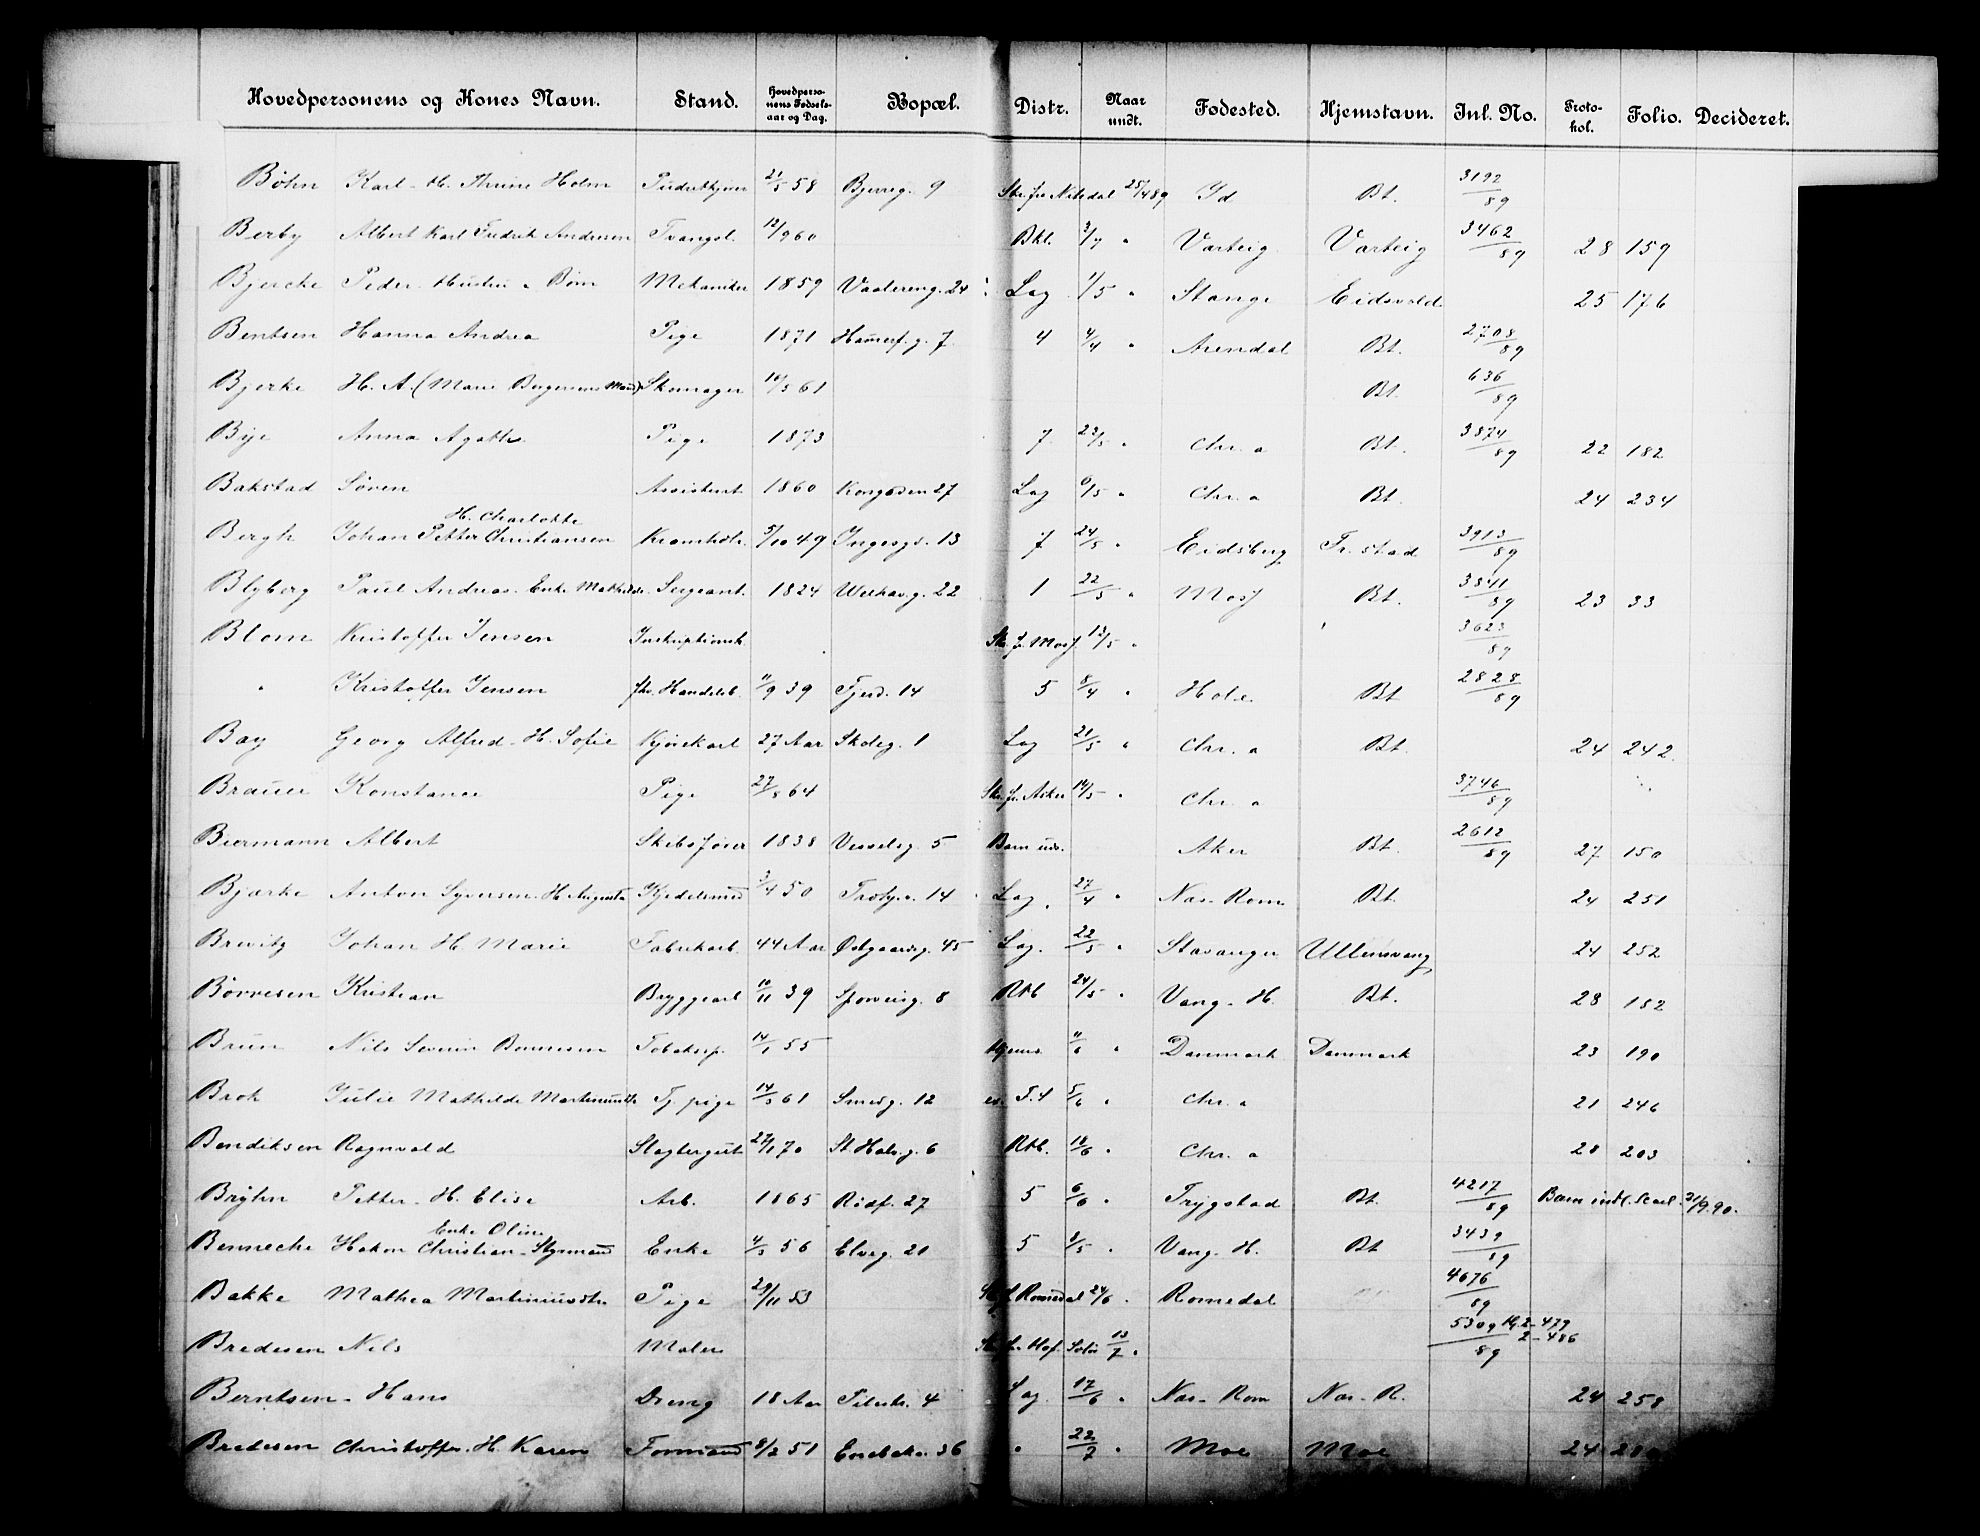 Hovedpersonens og Kones Navn. Stand. Hovedperso-nens Fødsels-aar og Dag. Bopæl. Distr. Naar undt. Fødested. Hjemstavn. Inl. No. Proto-kol. Folio. Decideret.
Bøhn Karl - H. Thrine Holm 21/5 58 Bjerreg. 9 Skr. fr. Nitedal 25/4 89 Id Bt. 3192/89
Berby Albert Karl Fredrik Andersen Tvangsl. 12/9 60 Bkl. 3/7 " Varteig Varteig 3462/89 28 159
Bjercke Peder. Hustru o Børn Mekaniker 1859 Vaalereng. 24 Lag 1/5 " Stange Eidsvold 25 176
Bentsen Hanna Andrea Pige 1871 Hamerf. g. 7 4 4/4 " Arendal Bt. 2708/89
Bjerke H. A. (Marie Borgersens Mand) Skomager 10/5 61 Bt. 636/89
Bye Anna Agathe Pige 1873 7 23/5 " Chr. a Bt. 3874/89 22 182
Bakstad Søren Assistent 1860 Kongsden 27 Lag 6/5 " Chr. a Bt. 24 234
H. Charlotte
Bergh Johan Petter Christiansen 5/10 49 Ingesgt. 13 7 24/5 " Eidsberg Fr. stad 3913/89
Blyberg Paul Andreas. Enke Mathilde Sergeant. 1824 Welhav. g. 22 1 22/5 " Moss Bt. 3841/89 23 33
Blom Kristoffer Jensen Inskriptionsk. Skr. f. Moss 13/5 " 3623/89
" Kristoffer Jensen fhv. Handelsb. 11/9 39 Fjerd. 14 5 8/4 " Hole Bt 2828/89
Bay Georg Alfred - H. Sofie Kjørekarl 27 Aar Skoleg. 1 Lag 21/5 " Chr. a Bt. 24 242.
Brauer Konstance Pige 27/8 64 Skr. fr. Asker 14/5 " Chr. a 3746/89
Biermann Albert Skibsfører 1838 Vesselsg. 5 Barn uds. Aker Bt. 2612/89 27 150
Bjærke Anton Syversen. H. Augusta Kjedelsmed 3/4 50 14 Lag. 27/4 " Næs - Rom. Bt. 24 251
Brevitz Johan H. Marie Fabrikarb. 44 Aar Østgaardsg. 45 Lag. 22/5 " Stavanger Ullensvang 24 252
Børresen Kristian Bryggearb 10/11 39 Sporveisg. 8 Rkb 24/5 " Vang - H. Bt. 28 182
Brun Nils Severin 14/1 55 Hjems. 11/6 " Danmark Danmark 23 190
Brok Julie Mathilde Martinusdtr Tj. pige 14/3 61 Smedg. 12 5/6 " Chr. a 21 246
Bendiksen Ragnvald Slagtergut 27/1 70 St Halv. g. 6 Rkb. 18/6 " Chr. a 28 203
Bryhn Petter - H. Elise Arb. 1865 Rødf. 27 5 6/6 " Trygstad Bt. 4217/89 Barn indl. Karl. 21/9.90.
Enke Oline
Bennecke Hakon Christian - Styrmand Enke 4/3 56 Elveg. 21 5 8/5 " Vang. H. Bt 3439/89
Bakke Mathea Martiniusdtr. Pige 29/11 53 Skr. f. Romedal 24/6 " Romedal 4676/89
Bredesen Nils Maler Skr. fr. Hof. Solør 13/7 " 5309/89 2 - 479
2 - 486
Berntsen - Hans Dreng 18 Aar Pilestr. 4 Lag. 17/6 " Næs - Rom Næs - R. 24 258
Bredesen Christoffer. H. Karen Formand 8/2 51 Enebakv. 36 " 22/7 " Moe Moe 24